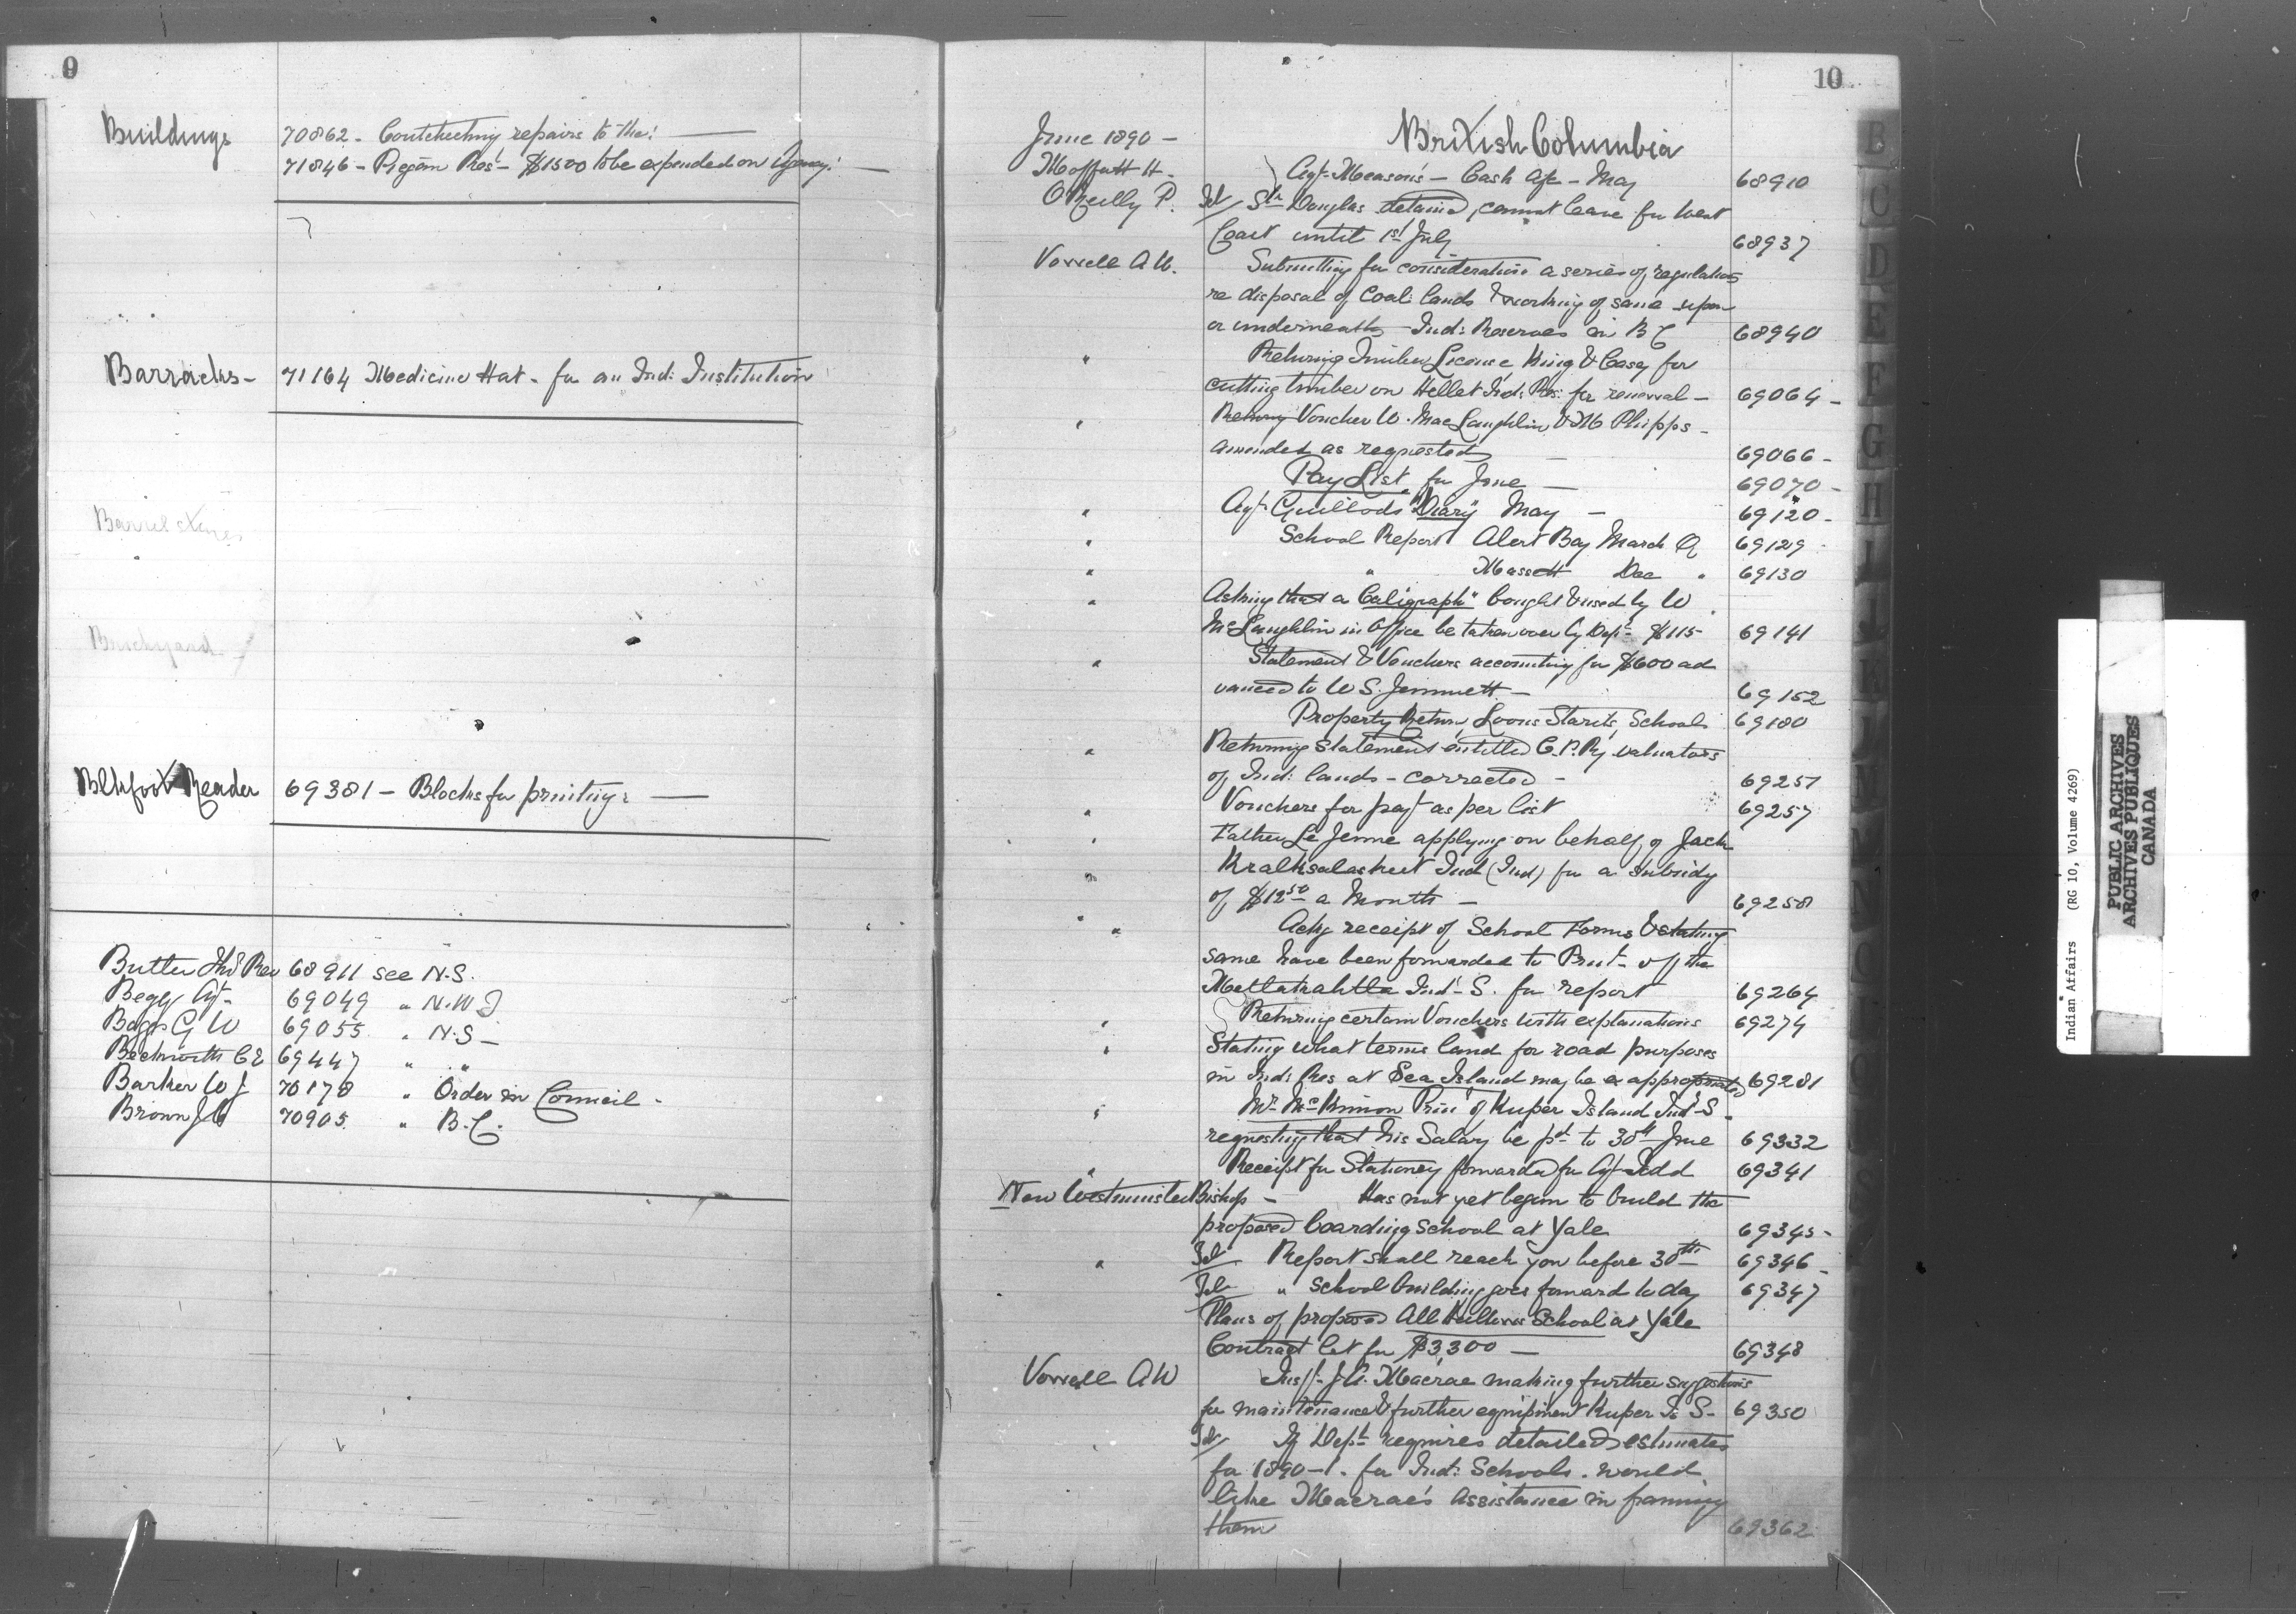 9
Buildings 70862 - Contracting repairs to the: —
71846 - Piegan Res - $1500 to be expended on Agency: —
Barracks - 71164 Medicine Hat - for an Ind: Institution
Barrel
Brickyard
Blkfoot Reader 69381 - Blocks for printing: —
Butler Rev 68911 see N.S.
Begg Agt - 69049 " N.W.T
Boggs G W 69055 " N.S -
Beckwith C E 69447 " "
Barker W J 70178 " Order in Council -
Brown J C 70905 " B.C.
10
June 1890 - British Columbia
Moffatt H - Agt. Meason's - Cash a/c - May 68910
O'Reilly P. Tel Str Douglas detained, cannot leave for West
Coast until 1st July 68937
Vowell A W. Submitting for consideration a series of regulations
re disposal of Coal lands & working of same upon
or underneath Ind: Reserves in B C 68940
" Returning Timber License, King & Casey for
cutting timber on Ind: Res: for renewal - 69064 -
" Returng Voucher W. MacLaughlin & Phipps -
amended as requested - 69066 -
Pay List for June - 69070 -
" Agt Guillods "Diary" May - 69120 -
" School Report Alert Bay March Q 69129
" " Massett Dec " 69130
" Asking that a "Caligraph" bought & used by W
McLaughlin in Office be taken over by Dept - $115- 69141
" Statement & Vouchers accounting for $600 ad
vanced to W S. Jemmett - 69152
Property Return, School 69180
" Returning Statement entitled C.P.Ry valuators
of Ind: lands - corrected - 69251
" Vouchers for payt as per list 69257
" Father Le Jeune applying on behalf of Jack
" Ind (Ind) for a subsidy
of $12 50 a Month - 69258
" Ackg receipt of School Forms & stating
" same have been forwarded to Print - of the
Metlakahtla Ind - S. for report 69264
" Returning certain Vouchers with explanations 69274
" Stating what terms land for road purposes
in Ind: Res at Sea Island may be expropriated 69281
" Mr McKinnon Prin of Kuper Island Ind - S -
requesting that his Salary be pd to 30th June 69332
" Receipt for Stationery forwarded for Agt Todd 69341
New Westminster Bishop - Has not yet begun to build the
proposed boarding School at Yale 69345 -
" Tel Report shall reach you before 30th - 69346 -
Tel " School building goes forward to day 69347
Plans of proposed All Hallows School at Yale
Contract let for $3,300 - 69348
Vowell A W Insp. J.A. Macrae making further suggestions
for maintenance & further equipment Kuper Is S - 69350
" Tel If Dept requires detailed estimates
for 1890-1. for Ind: Schools. would
like Macrae's assistance in framing
them 69362
B
C
D
E
F
G
H
I
Indian Affairs (RG 10, Volume 4269)
PUBLIC ARCHIVES
ARCHIVES PUBLIQUES
CANADA